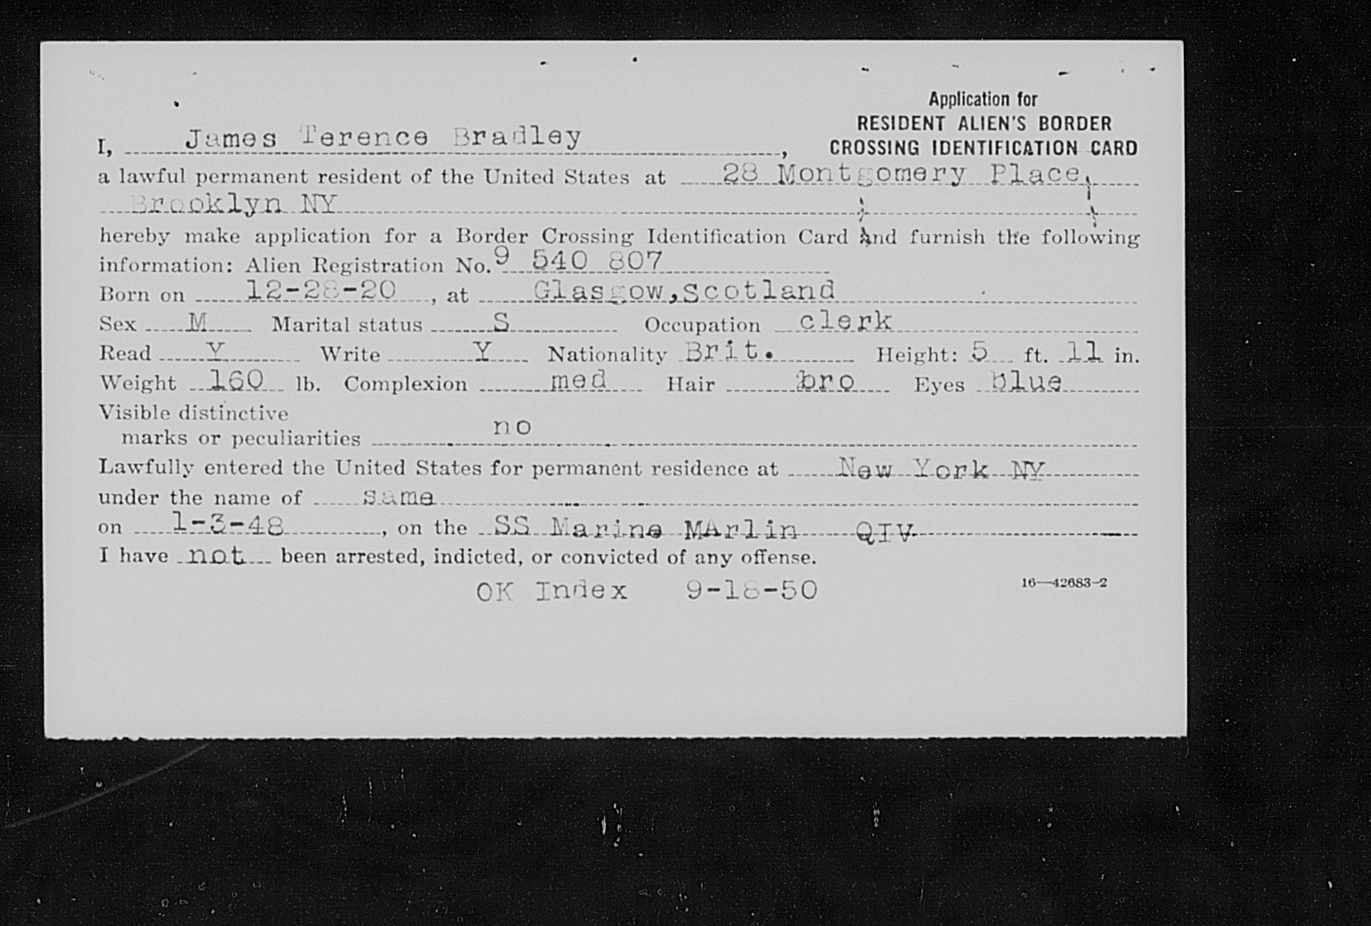 Application for
RESIDENT ALIEN'S BORDER
CROSSING IDENTIFICATION CARD
I, James Terence Bradley,
a lawful permanent resident of the United States at 28 Montgomery Place,
Brooklyn NY
hereby make application for a Border Crossing Identification Card and furnish the following
information: Alien Registration No. 9 540 807
Born on 12-28-20, at Glasgow,Scotland
Sex M Marital status S Occupation clerk
Read Y Write Y Nationality Brit. Height: 5 ft. 11 in.
Weight 160 lb. Complexion med Hair bro Eyes blue
Visible distinctive
marks or peculiarities no
Lawfully entered the United States for permanent residence at New York NY
under the name of same
on 1-3-48, on the SS Marine MArlin QIV
I have not been arrested, indicted, or convicted of any offense.
OK Index 9-18-50
16—42683-2